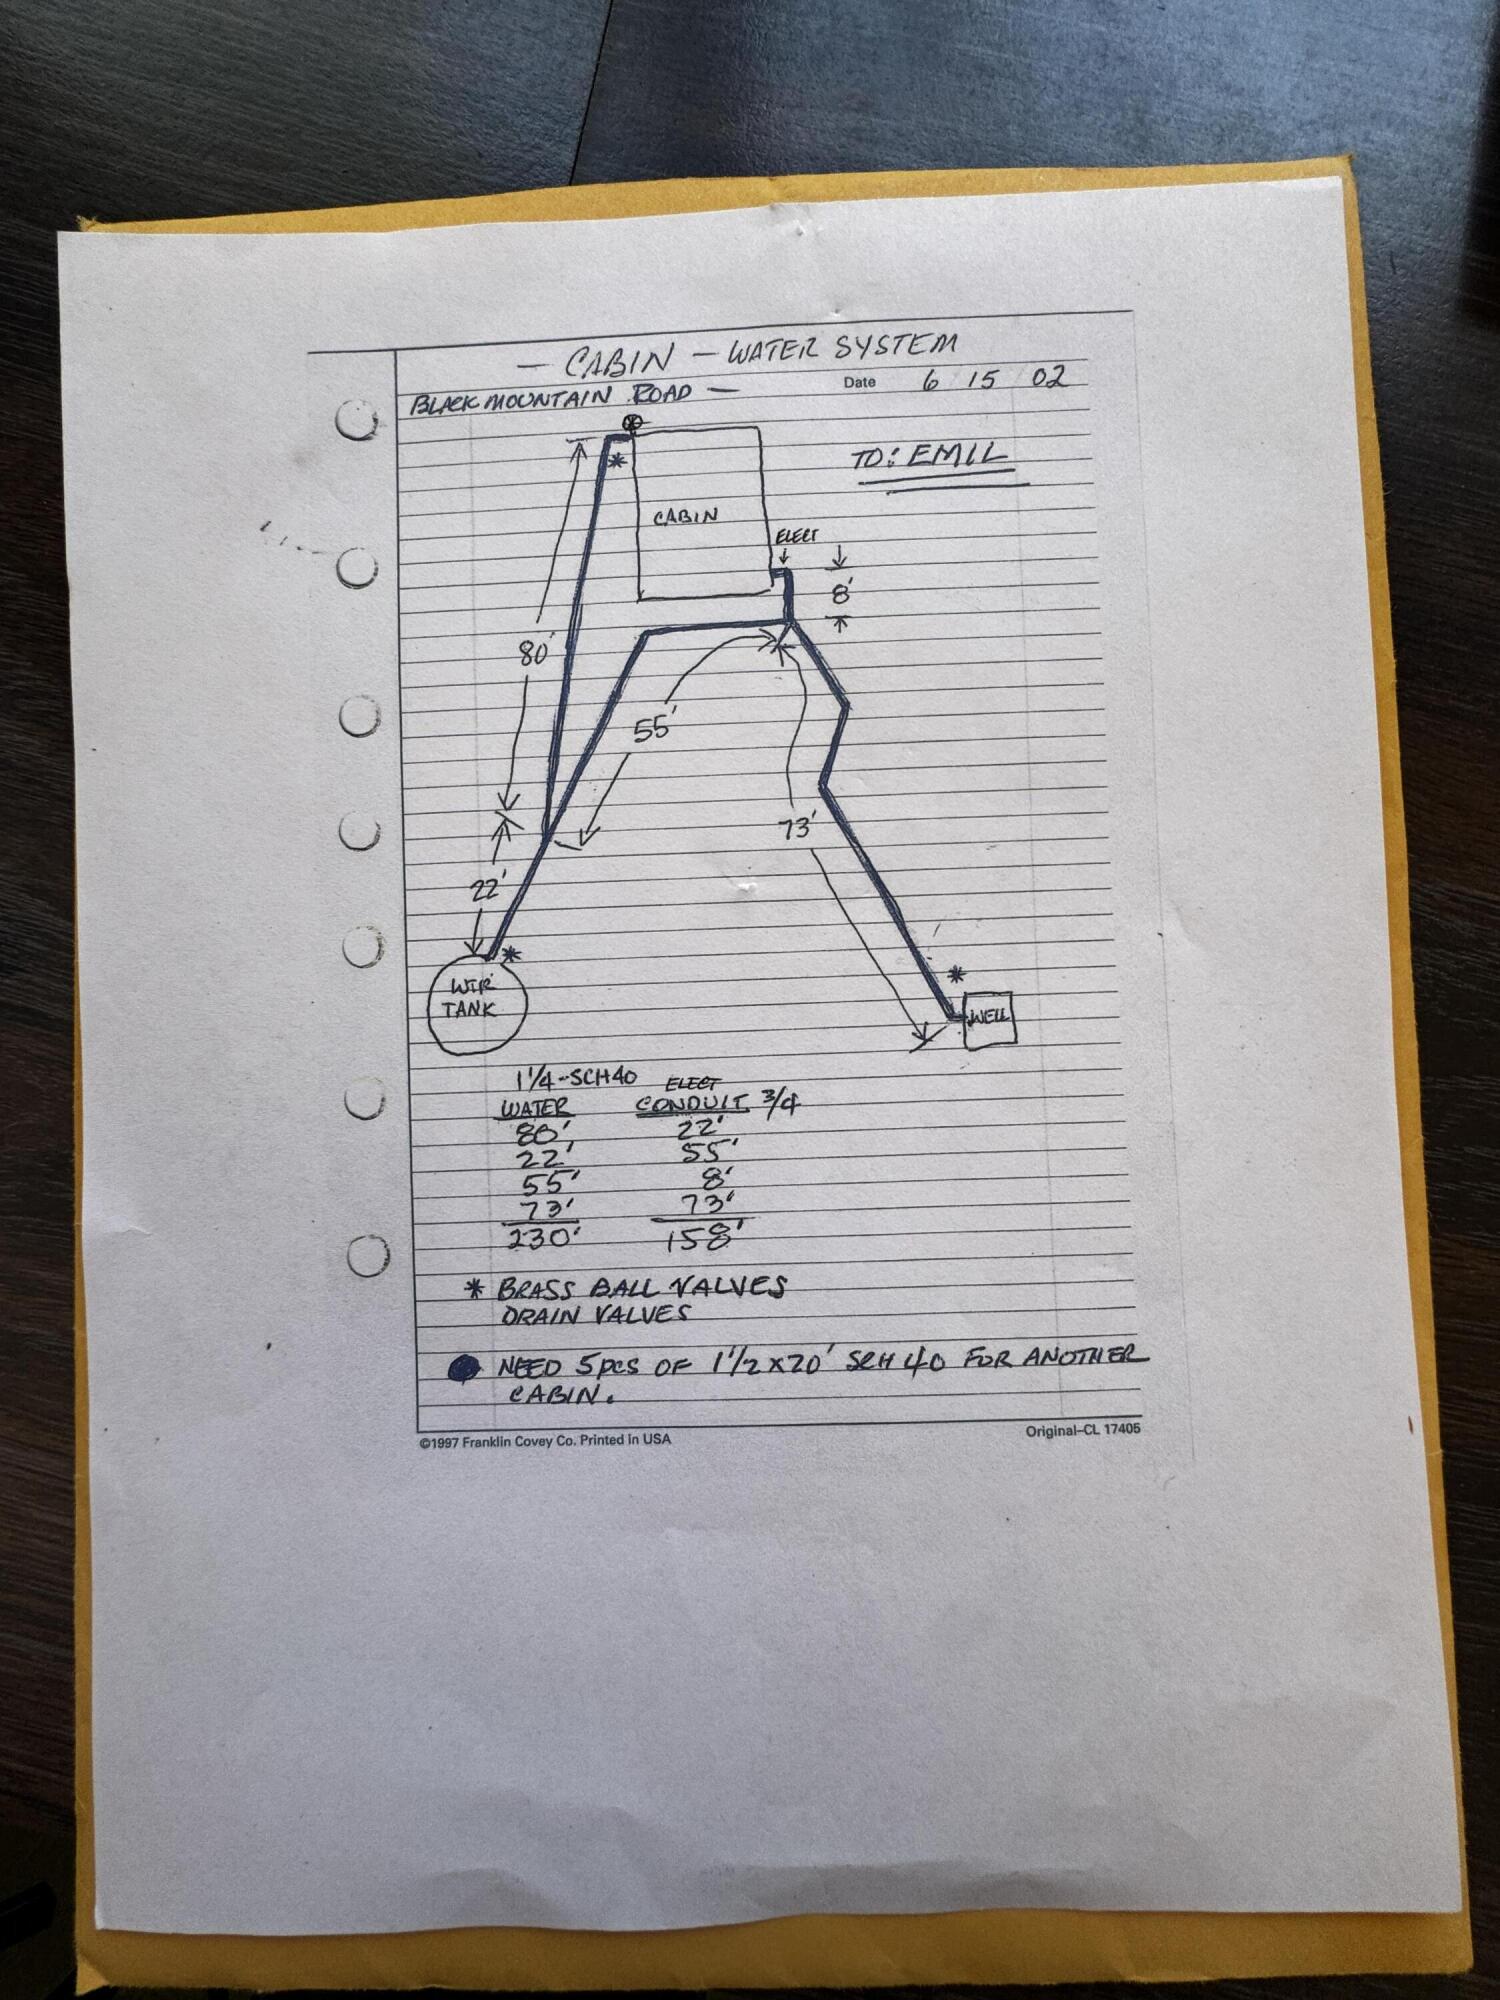 - CABIN - WATER SYSTEM
BLACK MOUNTAIN ROAD -
Date 6 15 02
TO: EMIL
CABIN
ELECT
8'
80'
55'
73'
22'
WTR
TANK
WELL
1 1/4 - SCH 40 ELECT
WATER CONDUIT 3/4
80' 22'
22' 55'
55' 8'
73' 73'
230' 158'
* BRASS BALL VALVES
DRAIN VALVES
● NEED 5 PCS OF 1 1/2 X 20' SCH 40 FOR ANOTHER
CABIN.
©1997 Franklin Covey Co. Printed in USA
Original–CL 17405